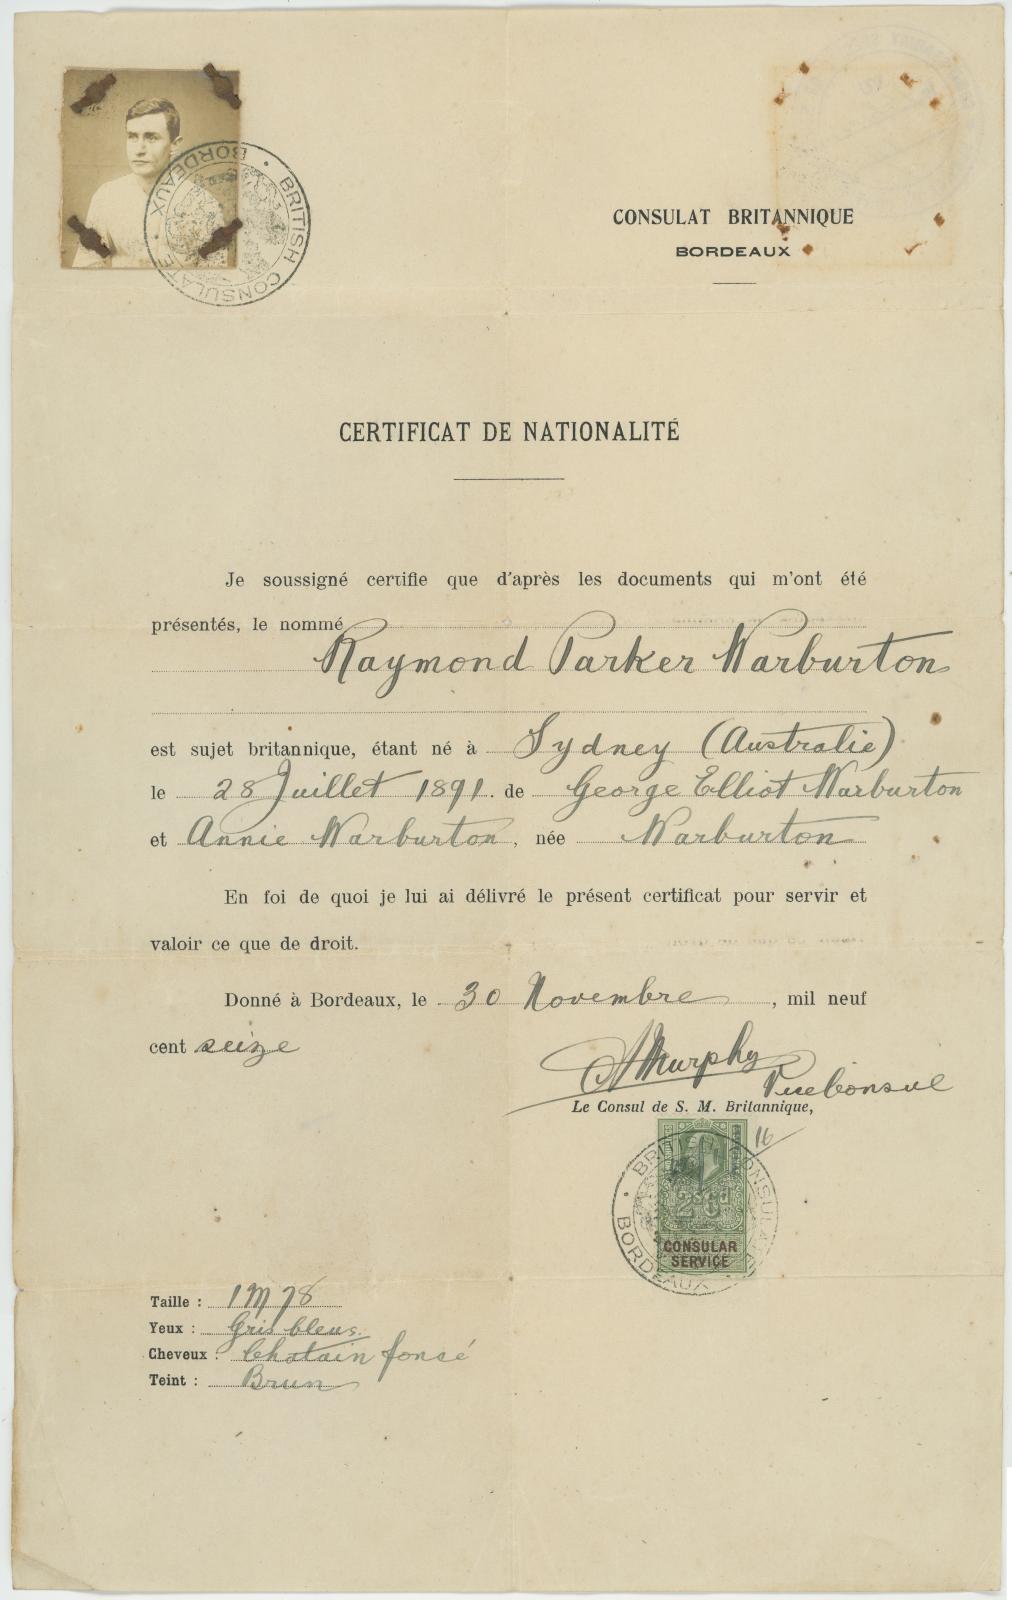 BRITISH CONSULATE
BORDEAUX
CONSULAT BRITANNIQUE
BORDEAUX
CERTIFICAT DE NATIONALITÉ
Je soussigné certifie que d'après les documents qui m'ont été
présentés, le nommé
Raymond Parker Warburton
est sujet britannique, étant né à Sydney (Australie)
le 28 Juillet 1891. de George Elliot Warburton
et Annie Warburton, née Warburton
En foi de quoi je lui ai délivré le présent certificat pour servir et
valoir ce que de droit.
Donné à Bordeaux, le 30 Novembre, mil neuf
cent seize
Murphy
Vice Consul
Le Consul de S. M. Britannique,
16
BRITISH CONSULATE
BORDEAUX
2s 6d
CONSULAR
SERVICE
Taille : 1 M 78
Yeux : Gris bleus.
Cheveux : Chatain foncé
Teint : Brun